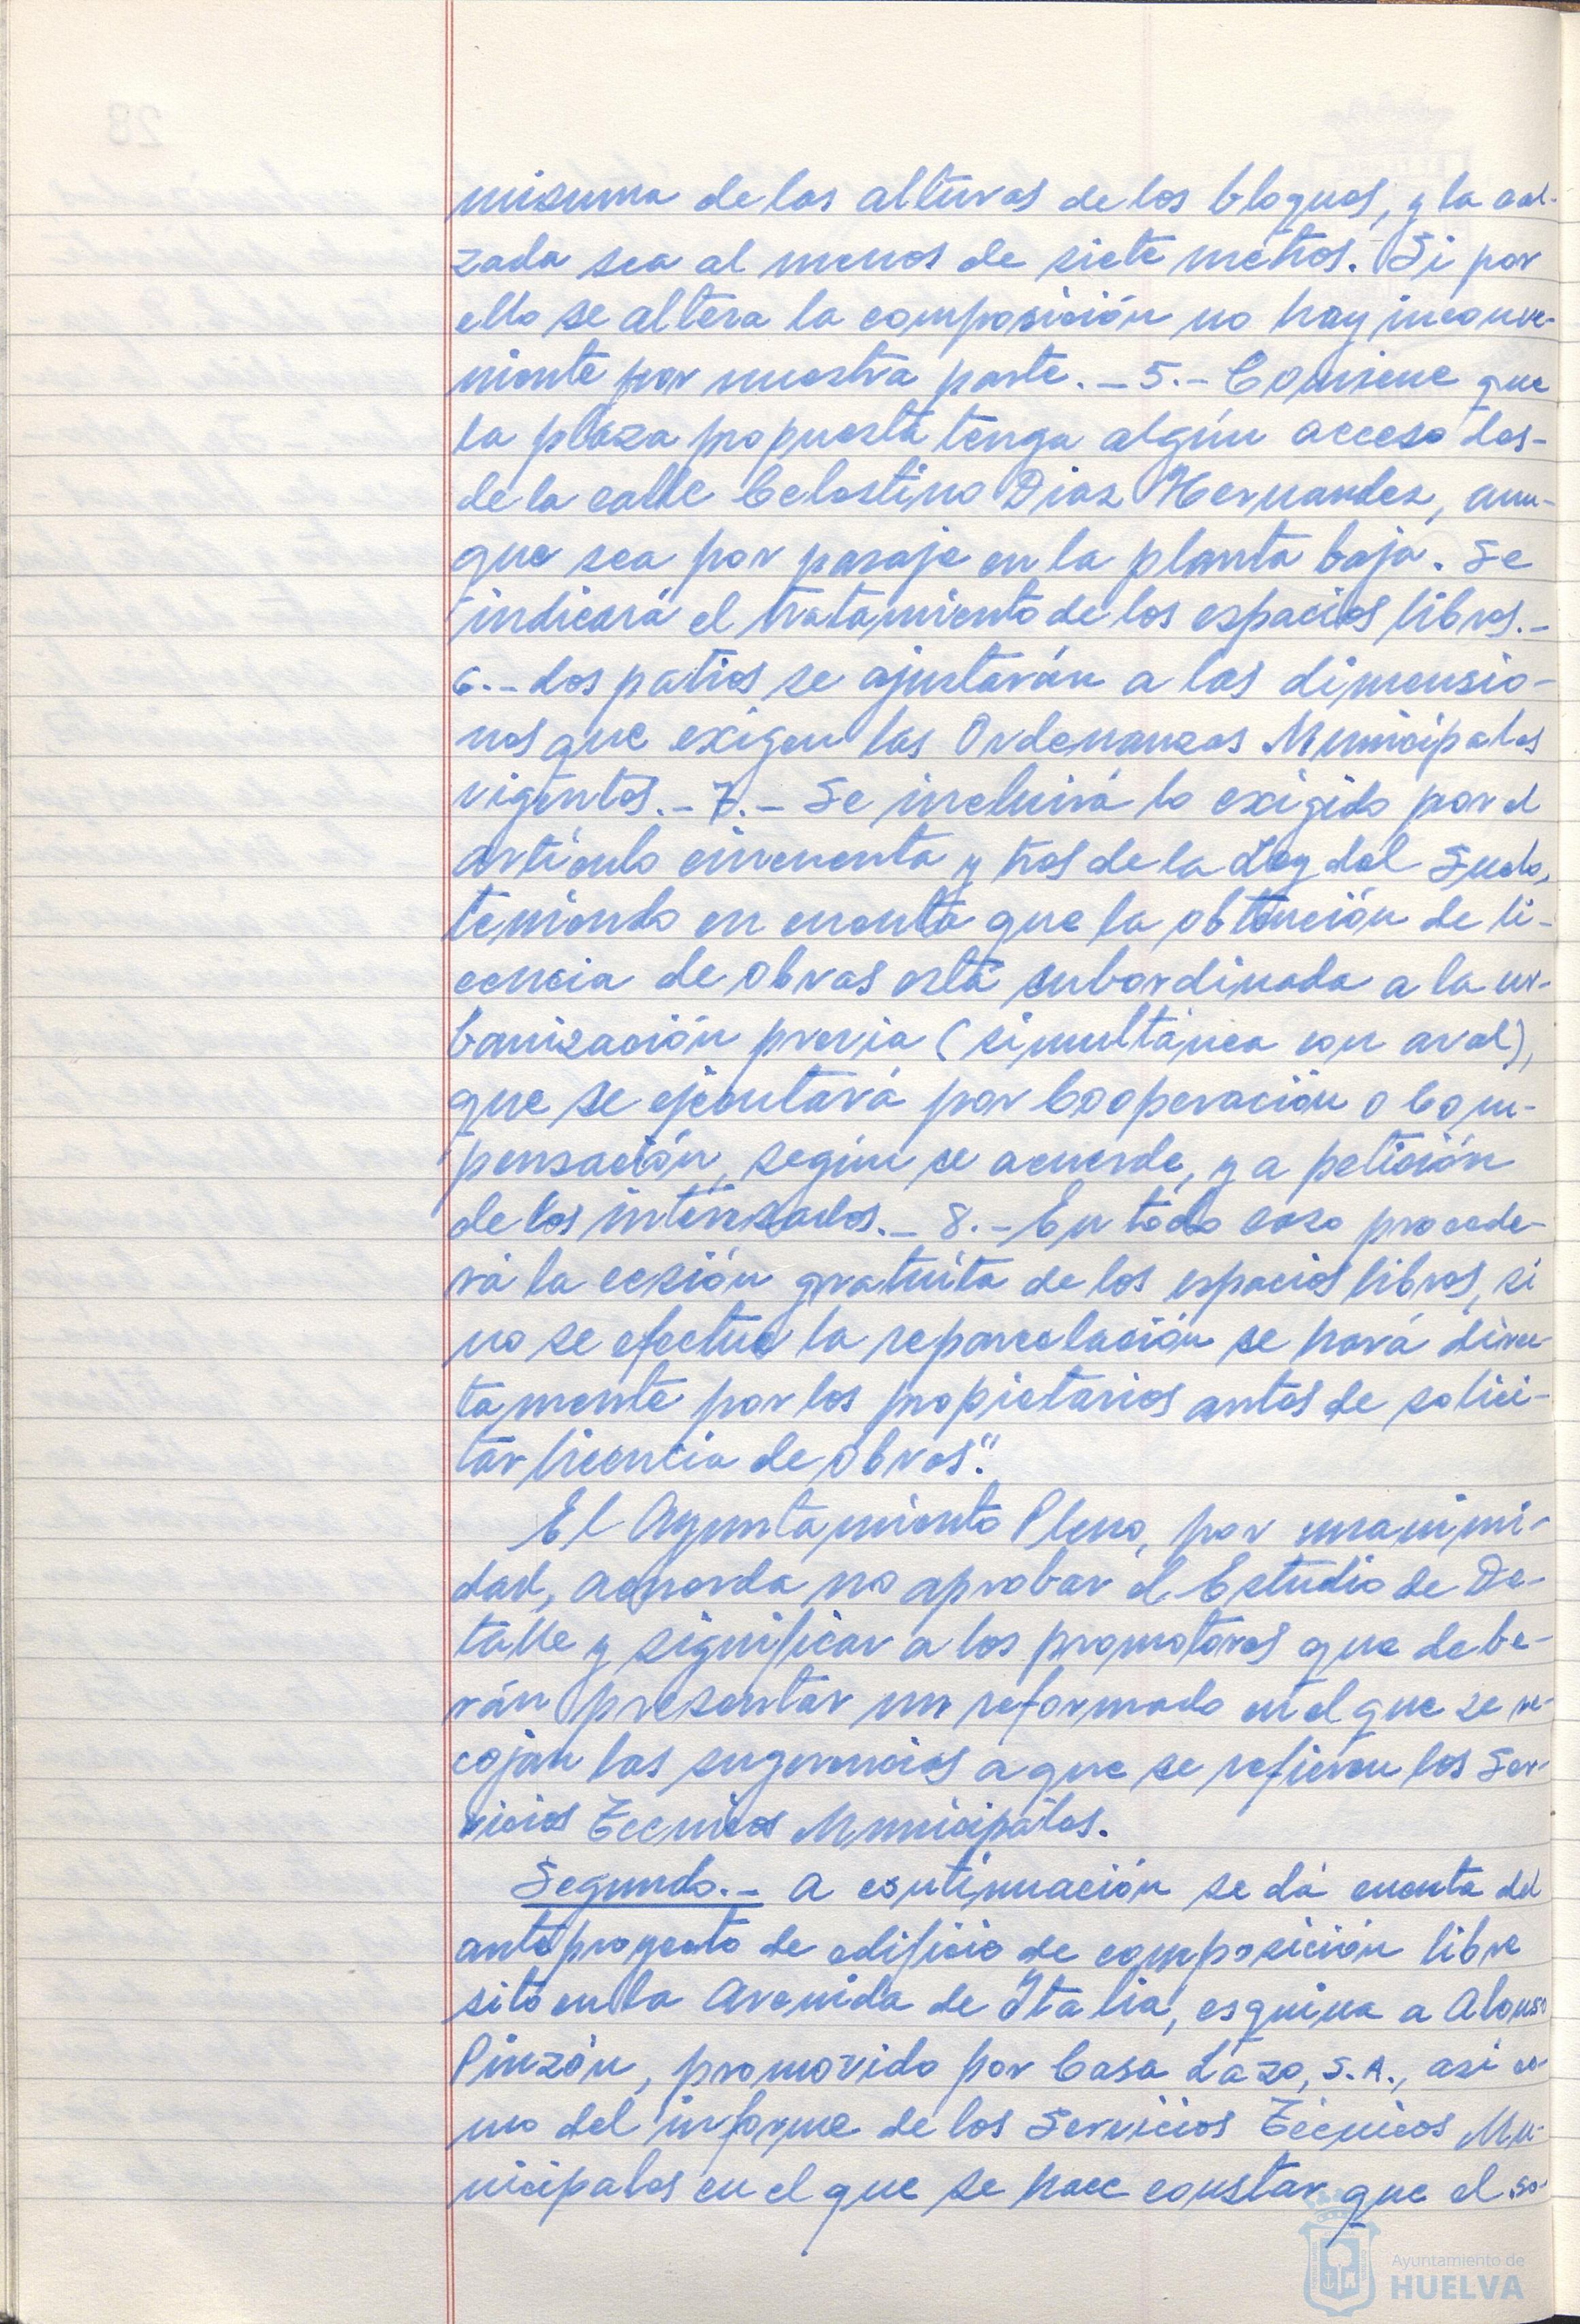 misuma de las alturas de los bloques, y la cal-
zada sea al menos de siete metros. Si por
ello se altera la composición no hay inconve-
niente por nuestra parte. - 5.- Conviene que
la plaza propuesta tenga algún acceso des-
de la calle Celestino Diaz Hernandez, aun-
que sea por pasaje en la planta baja. Se
indicará el tratamiento de los espacios libres.-
6.- Los patios se ajustarán a las dimensio-
nes que exigen las Ordenanzas Municipales
vigentes.- 7.- Se incluirá lo exigido por el
artículo cincuenta y tres de la Ley del Suelo,
teniendo en cuenta que la obtención de li-
cencia de obras está subordinada a la ur-
banización previa (simultánea con aval),
que se ejecutará por Cooperación o Com-
pensación, según se acuerde, y a petición
de los interesados.- 8.- En todo caso procede-
rá la cesión gratuita de los espacios libres, si
no se efectua la reparcelación se hará direc-
tamente por los propietarios antes de solici-
tar licencia de obras".
El Ayuntamiento Pleno, por unanimi-
dad, acuerda no aprobar el Estudio de De-
talle y significar a los promotores que debe-
rán presentar un reformado en el que se re-
cojan las sugerencias a que se refieren los Ser-
vicios Tecnicos Municipales.
Segundo.- A continuación se dá cuenta del
anteproyecto de edificio de composición libre
sito en la Avenida de Italia, esquina a Alonso
Pinzón, promovido por Casa Lazo, S.A., así co-
mo del informe de los Servicios Técnicos Mu-
nicipales en el que se hace constar que el so-
Ayuntamiento de
HUELVA
28